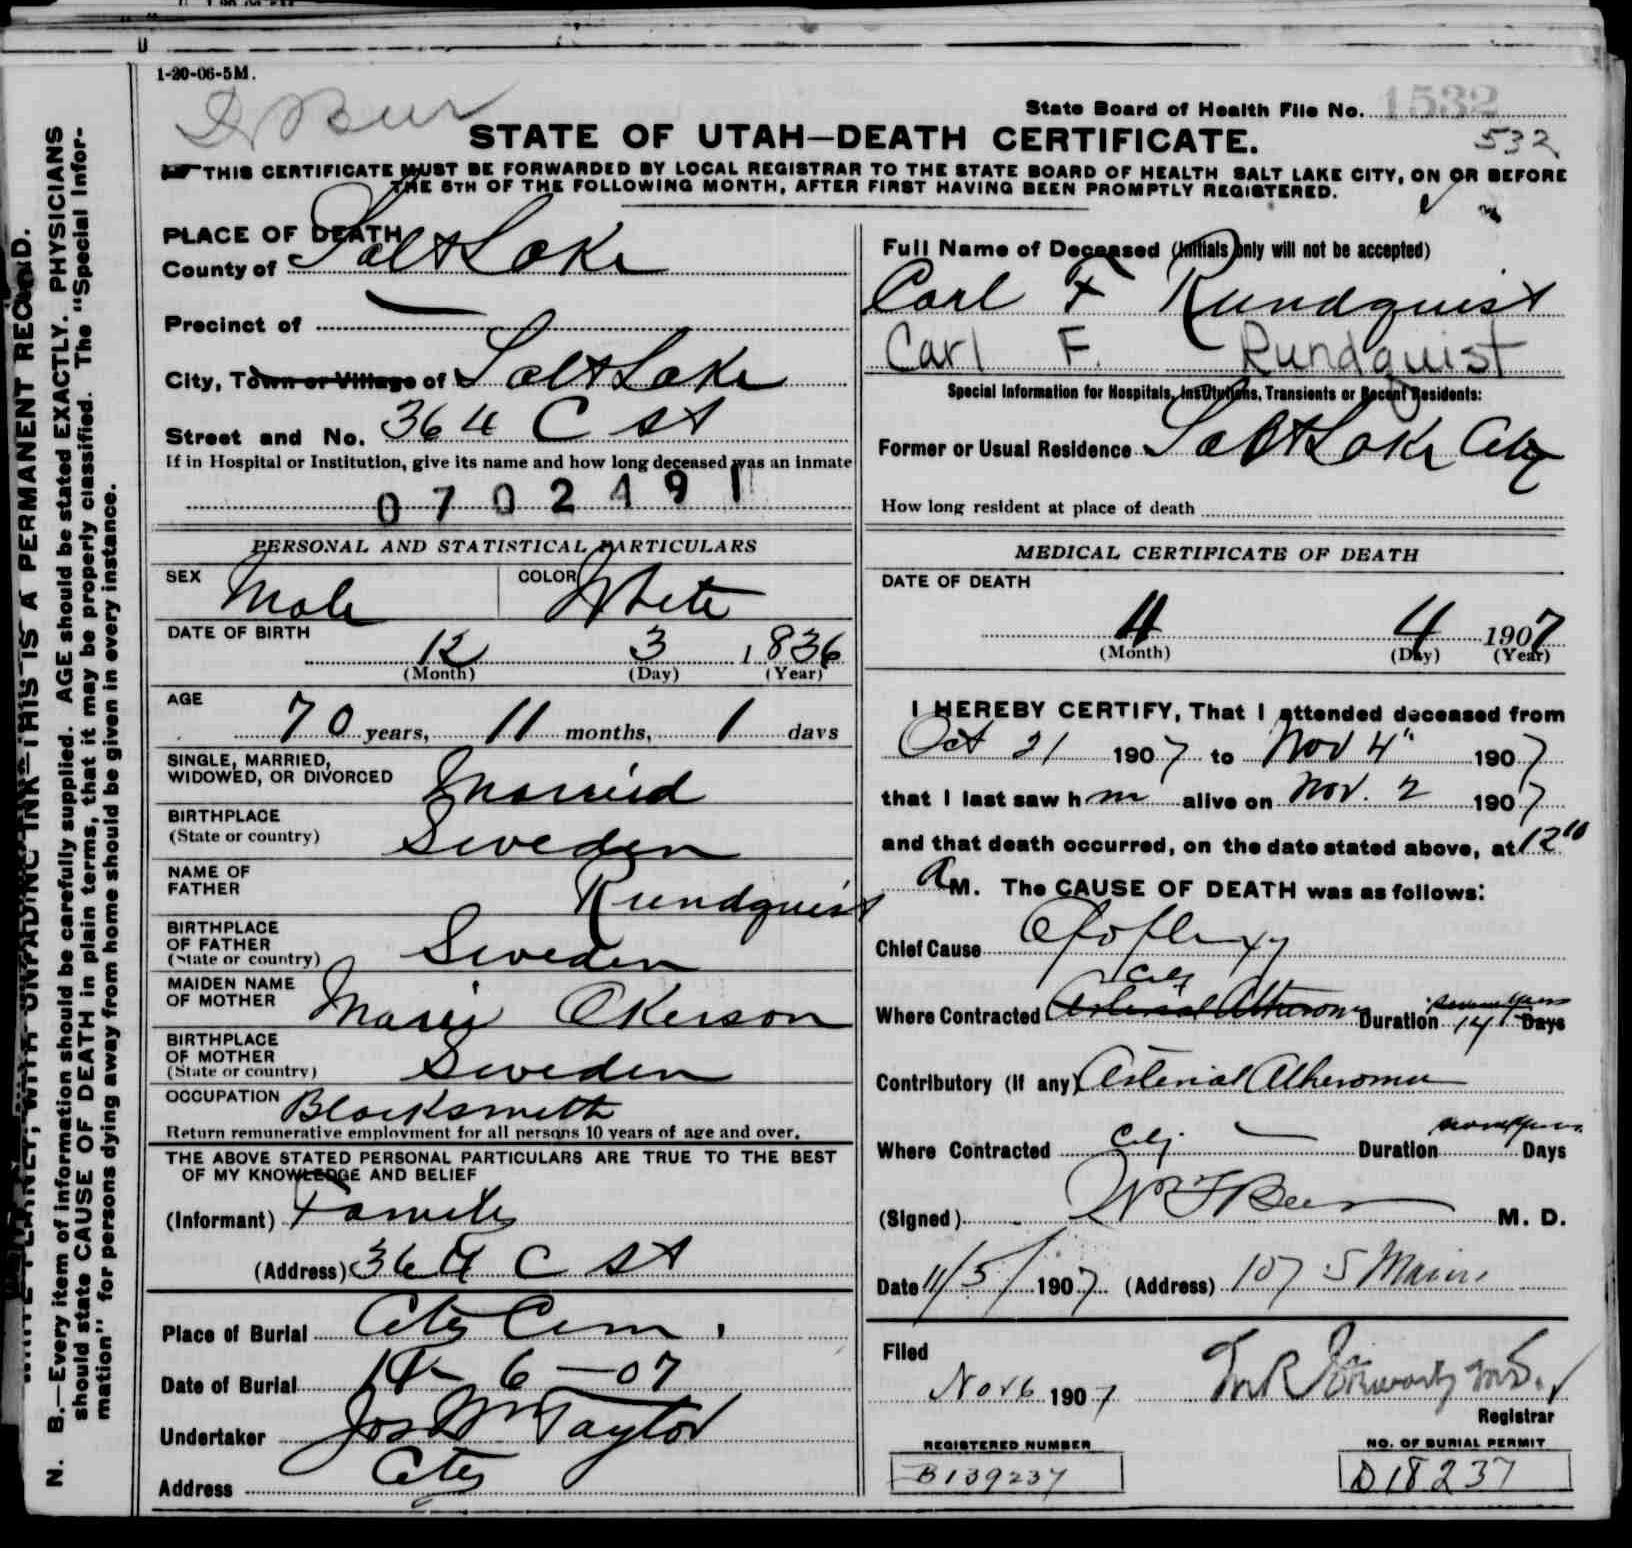 1-20-06-5M.
State Board of Health File No. 1532
532
STATE OF UTAH—DEATH CERTIFICATE.
THIS CERTIFICATE MUST BE FORWARDED BY LOCAL REGISTRAR TO THE STATE BOARD OF HEALTH SALT LAKE CITY, ON OR BEFORE
THE 5TH OF THE FOLLOWING MONTH, AFTER FIRST HAVING BEEN PROMPTLY REGISTERED.
PLACE OF DEATH
County of Salt Lake
Precinct of —
City, Town or Village of Salt Lake
Street and No. 364 C St
If in Hospital or Institution, give its name and how long deceased was an inmate
0702491
PERSONAL AND STATISTICAL PARTICULARS
SEX Male COLOR White
DATE OF BIRTH
12 3 1836
(Month) (Day) (Year)
AGE
70 years, 11 months, 1 days
SINGLE, MARRIED,
WIDOWED, OR DIVORCED Married
BIRTHPLACE
(State or country) Sweden
NAME OF
FATHER Rundquist
BIRTHPLACE
OF FATHER
(State or country) Sweden
MAIDEN NAME
OF MOTHER Marie Okerson
BIRTHPLACE
OF MOTHER
(State or country) Sweden
OCCUPATION Blacksmith
Return remunerative employment for all persons 10 years of age and over.
THE ABOVE STATED PERSONAL PARTICULARS ARE TRUE TO THE BEST
OF MY KNOWLEDGE AND BELIEF
(Informant) Family
(Address) 364 C St
Place of Burial City Cem.
Date of Burial 11 - 6 - 07
Undertaker Jos Wm Taylor
Address City
Full Name of Deceased (Initials only will not be accepted)
Carl F Rundquist
Carl F. Rundquist
Special Information for Hospitals, Institutions, Transients or Recent Residents:
Former or Usual Residence Salt Lake City
How long resident at place of death
MEDICAL CERTIFICATE OF DEATH
DATE OF DEATH
11 4 1907
(Month) (Day) (Year)
I HEREBY CERTIFY, That I attended deceased from
Oct 21 1907 to Nov 4" 1907
that I last saw h m alive on Nov. 2 1907
and that death occurred, on the date stated above, at 12 10
A M. The CAUSE OF DEATH was as follows:
Chief Cause Apoplexy
City
Where Contracted Arterial Atheroma Duration 14 Days
Contributory (if any) Arterial Atheroma
Where Contracted City — Duration Days
(Signed) Wm F Beer M. D.
Date 11/5/1907 (Address) 107 S Main
Filed
Nov 6 1907
Registrar
REGISTERED NUMBER
B139237
NO. OF BURIAL PERMIT
D18237
WRITE PLAINLY, WITH UNFADING INK—THIS IS A PERMANENT RECORD.
N. B.—Every item of information should be carefully supplied. AGE should be stated EXACTLY. PHYSICIANS
should state CAUSE OF DEATH in plain terms, that it may be properly classified. The "Special Infor-
mation" for persons dying away from home should be given in every instance.